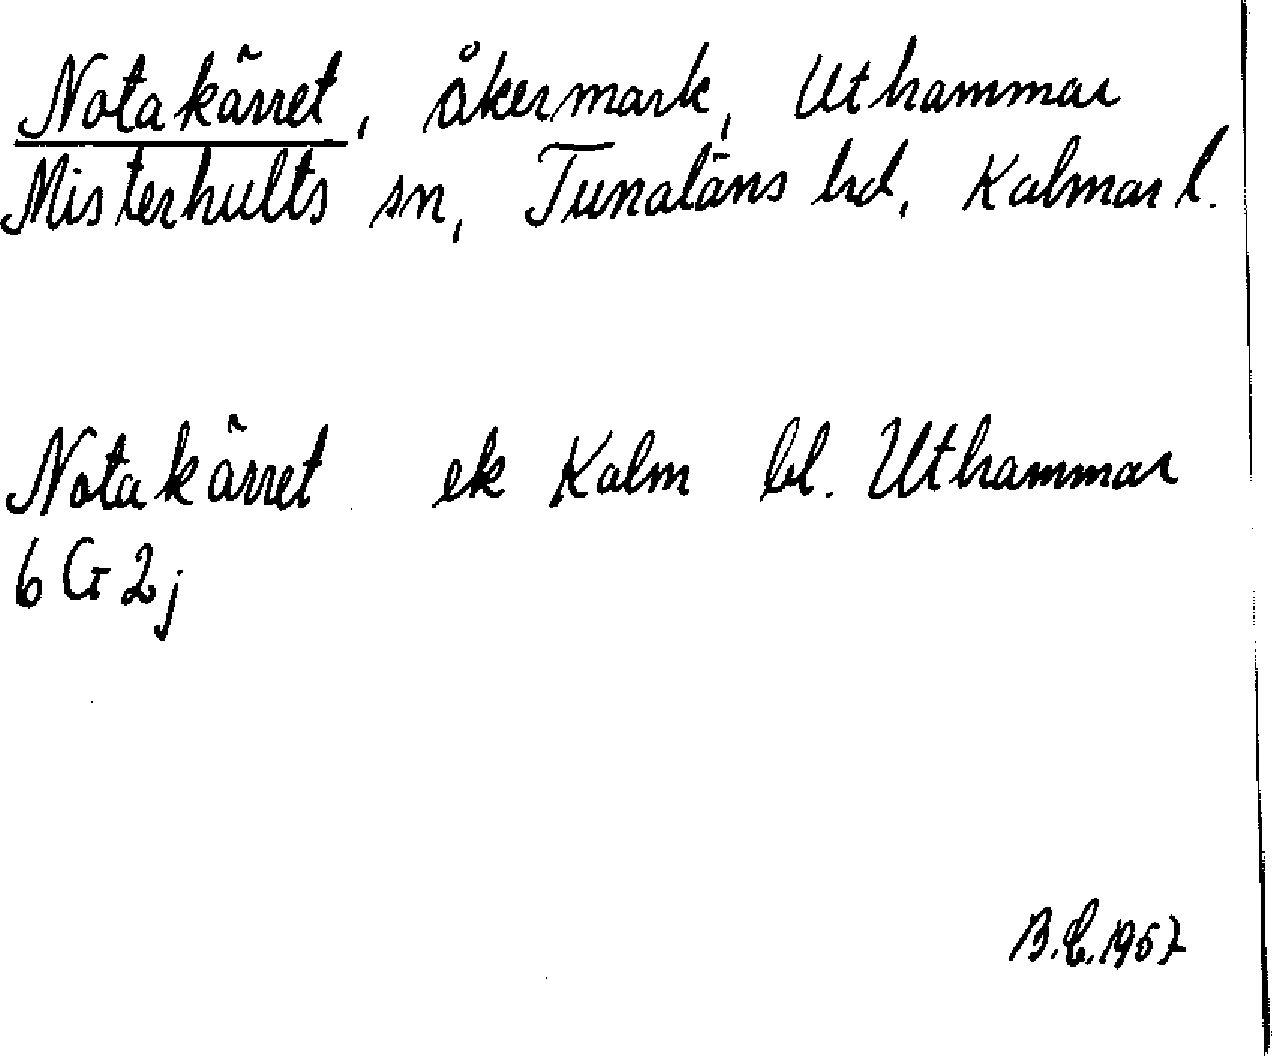 Notakärret, åkermark, Uthammar
Misterhults sn, Tunaläns hd, Kalmar l.
Notakärret ek Kalm bl. Uthammar
6 G 2j
B.C. 1967